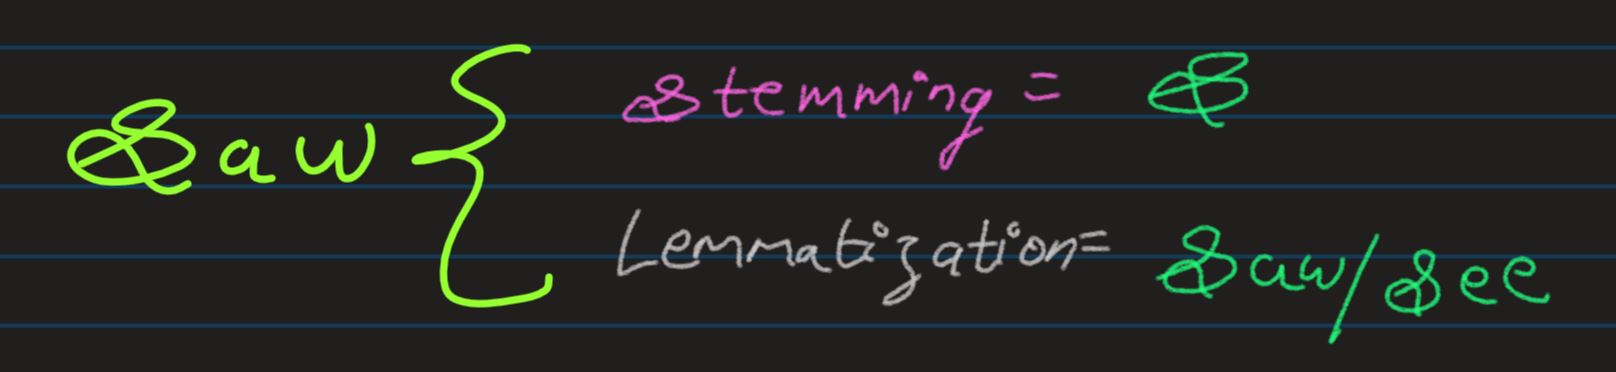 Saw { Stemming = S
Lemmatization= Saw/See